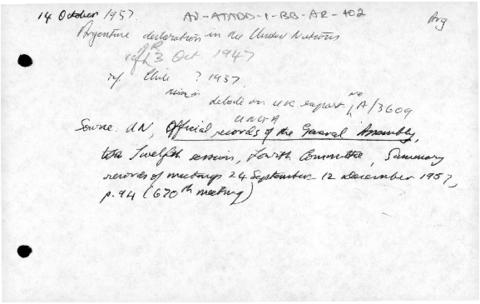 14 October 1957. AU-ATADD-1-BB-AR-402 Arg
Argentine declaration in the United Nations
cf 3 Oct 1947
cf Chile ? 1957.
debate on UNC report A/3609
UNGA
Source: UN, Official records of the General Assembly,
Twelfth session, Fourth Committee, Summary
records of meetings 24 September - 12 December 1957,
p. 94 (670th meeting)